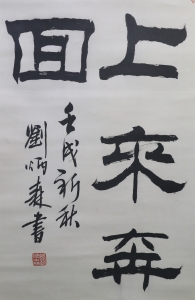 上來奔
回
壬戌新秋
劉炳森書